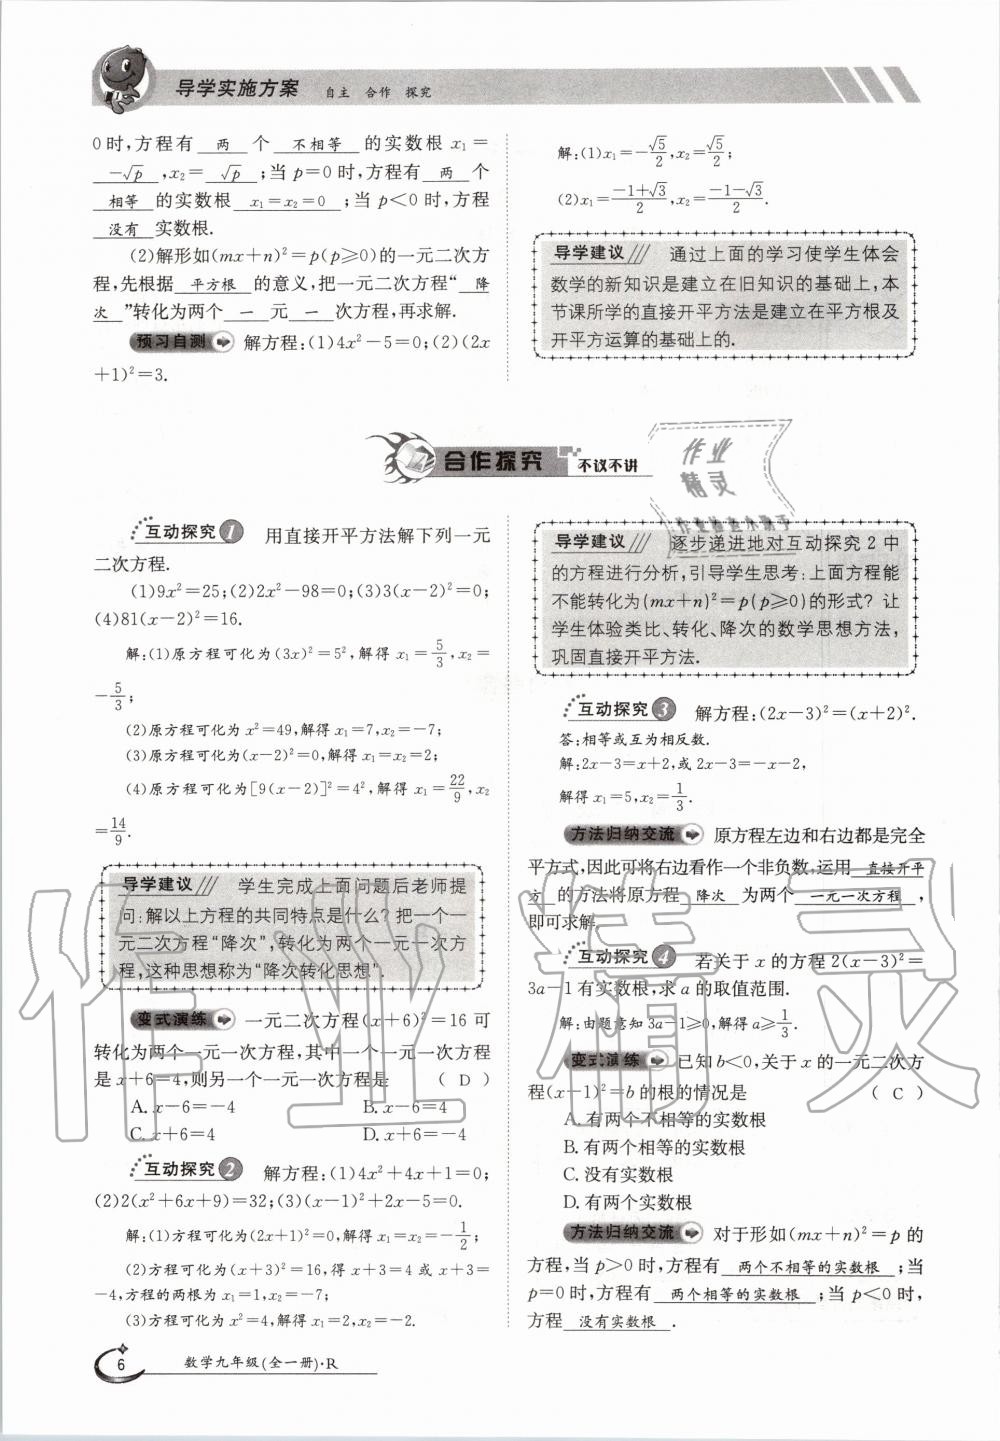 导学实施方案 自主 合作 探究
0时,方程有 两 个 不相等 的实数根 x₁=
-√p ,x₂= √p ;当 p=0 时,方程有 两 个
相等 的实数根 x₁=x₂=0 ;当 p<0 时,方程
没有 实数根.
(2)解形如(mx+n)²=p(p≥0)的一元二次方
程,先根据 平方根 的意义,把一元二次方程“ 降
次 ”转化为两个 一 元 一 次方程,再求解.
预习自测 解方程:(1)4x²-5=0;(2)(2x
+1)²=3.
解:(1)x₁=-√5/2,x₂=√5/2;
(2)x₁=(-1+√3)/2,x₂=(-1-√3)/2.
导学建议 通过上面的学习使学生体会
数学的新知识是建立在旧知识的基础上,本
节课所学的直接开平方法是建立在平方根及
开平方运算的基础上的.
合作探究 不议不讲
互动探究1 用直接开平方法解下列一元
二次方程.
(1)9x²=25;(2)2x²-98=0;(3)3(x-2)²=0;
(4)81(x-2)²=16.
解:(1)原方程可化为(3x)²=5²,解得 x₁=5/3,x₂=
-5/3;
(2)原方程可化为 x²=49,解得 x₁=7,x₂=-7;
(3)原方程可化为(x-2)²=0,解得 x₁=x₂=2;
(4)原方程可化为[9(x-2)]²=4²,解得 x₁=22/9,x₂
=14/9.
导学建议 学生完成上面问题后老师提
问:解以上方程的共同特点是什么?把一个一
元二次方程“降次”,转化为两个一元一次方
程,这种思想称为“降次转化思想”.
变式演练 一元二次方程(x+6)²=16 可
转化为两个一元一次方程,其中一个一元一次方程
是 x+6=4,则另一个一元一次方程是 ( D )
A. x-6=-4 B. x-6=4
C. x+6=4 D. x+6=-4
互动探究2 解方程:(1)4x²+4x+1=0;
(2)2(x²+6x+9)=32;(3)(x-1)²+2x-5=0.
解:(1)方程可化为(2x+1)²=0,解得 x₁=x₂=-1/2;
(2)方程可化为(x+3)²=16,得 x+3=4 或 x+3=
-4,方程的两根为 x₁=1,x₂=-7;
(3)方程可化为 x²=4,解得 x₁=2,x₂=-2.
导学建议 逐步递进地对互动探究 2 中
的方程进行分析,引导学生思考:上面方程能
不能转化为(mx+n)²=p(p≥0)的形式?让
学生体验类比、转化、降次的数学思想方法,
巩固直接开平方法.
互动探究3 解方程:(2x-3)²=(x+2)².
答:相等或互为相反数.
解:2x-3=x+2,或 2x-3=-x-2,
解得 x₁=5,x₂=1/3.
方法归纳交流 原方程左边和右边都是完全
平方式,因此可将右边看作一个非负数,运用 直接开平
方 的方法将原方程 降次 为两个 一元一次方程 ,
即可求解.
互动探究4 若关于 x 的方程 2(x-3)²=
3a-1 有实数根,求 a 的取值范围.
解:由题意知 3a-1≥0,解得 a≥1/3.
变式演练 已知 b<0,关于 x 的一元二次方
程(x-1)²=b 的根的情况是 ( C )
A. 有两个不相等的实数根
B. 有两个相等的实数根
C. 没有实数根
D. 有两个实数根
方法归纳交流 对于形如(mx+n)²=p 的
方程,当 p>0 时,方程有 两个不相等的实数根 ;当
p=0 时,方程有 两个相等的实数根 ;当 p<0 时,
方程 没有实数根 .
6 数学九年级(全一册)·R
作业
精灵
作业精灵